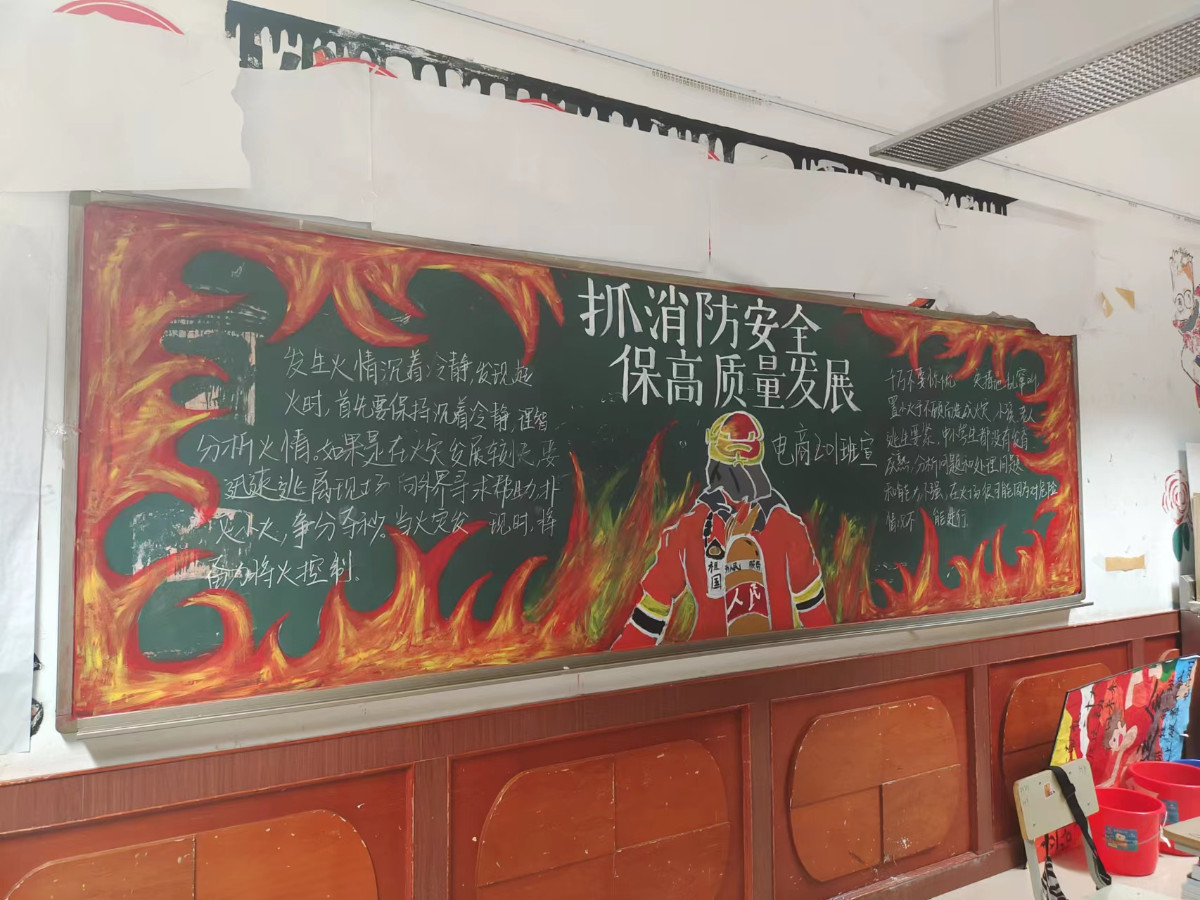 抓消防安全
保高质量发展
电商201班宣
发生火情沉着冷静,发现起
火时,首先要保持沉着冷静,理智
分析火情。如果是在火灾发展
迅速逃离现场 向外界寻求帮助,扑
灭小火,争分夺秒。当火灾发 现时,将
将火控制。
千万不要惊慌
置小火于不顾而酿成火灾,小孩、老人
中小学生都没有
分析问题和处理问题
和能力不强,在火场很可能因为对危险
情况不 能进行。
祖国
人民